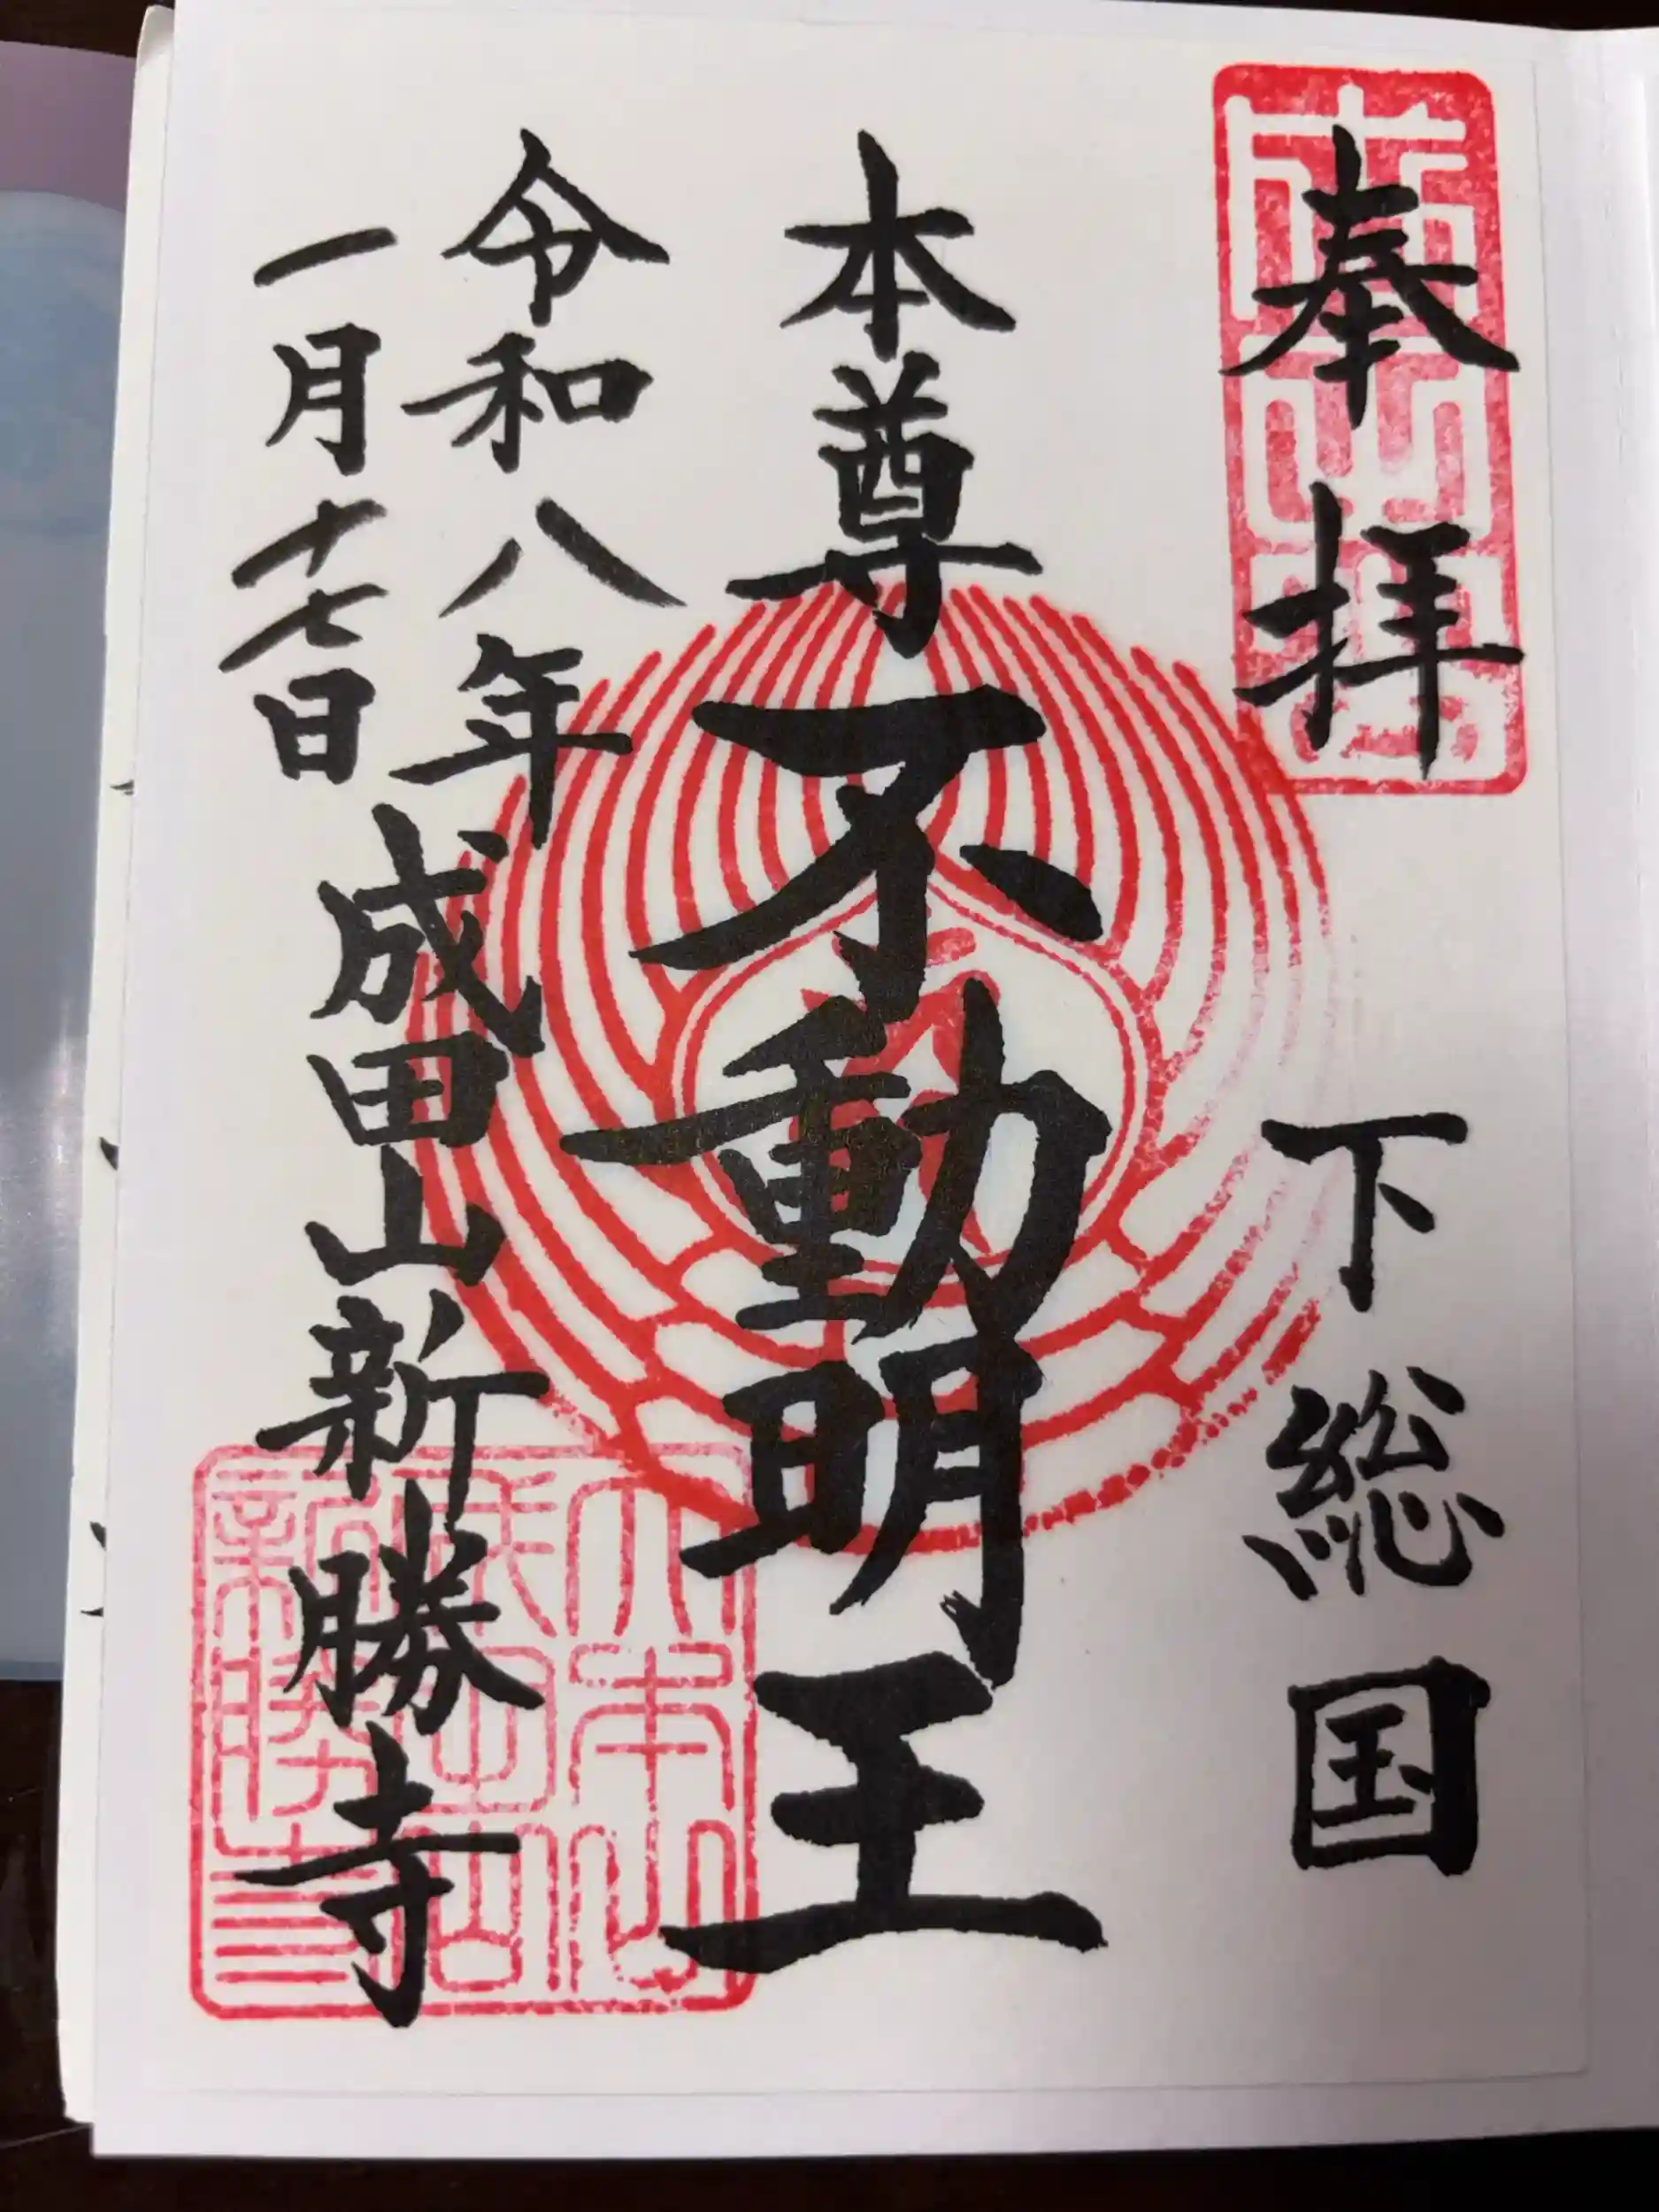 奉拝　下総国
本尊不動明王
令和八年
一月十七日
成田山新勝寺
大本山
成田山
新勝寺